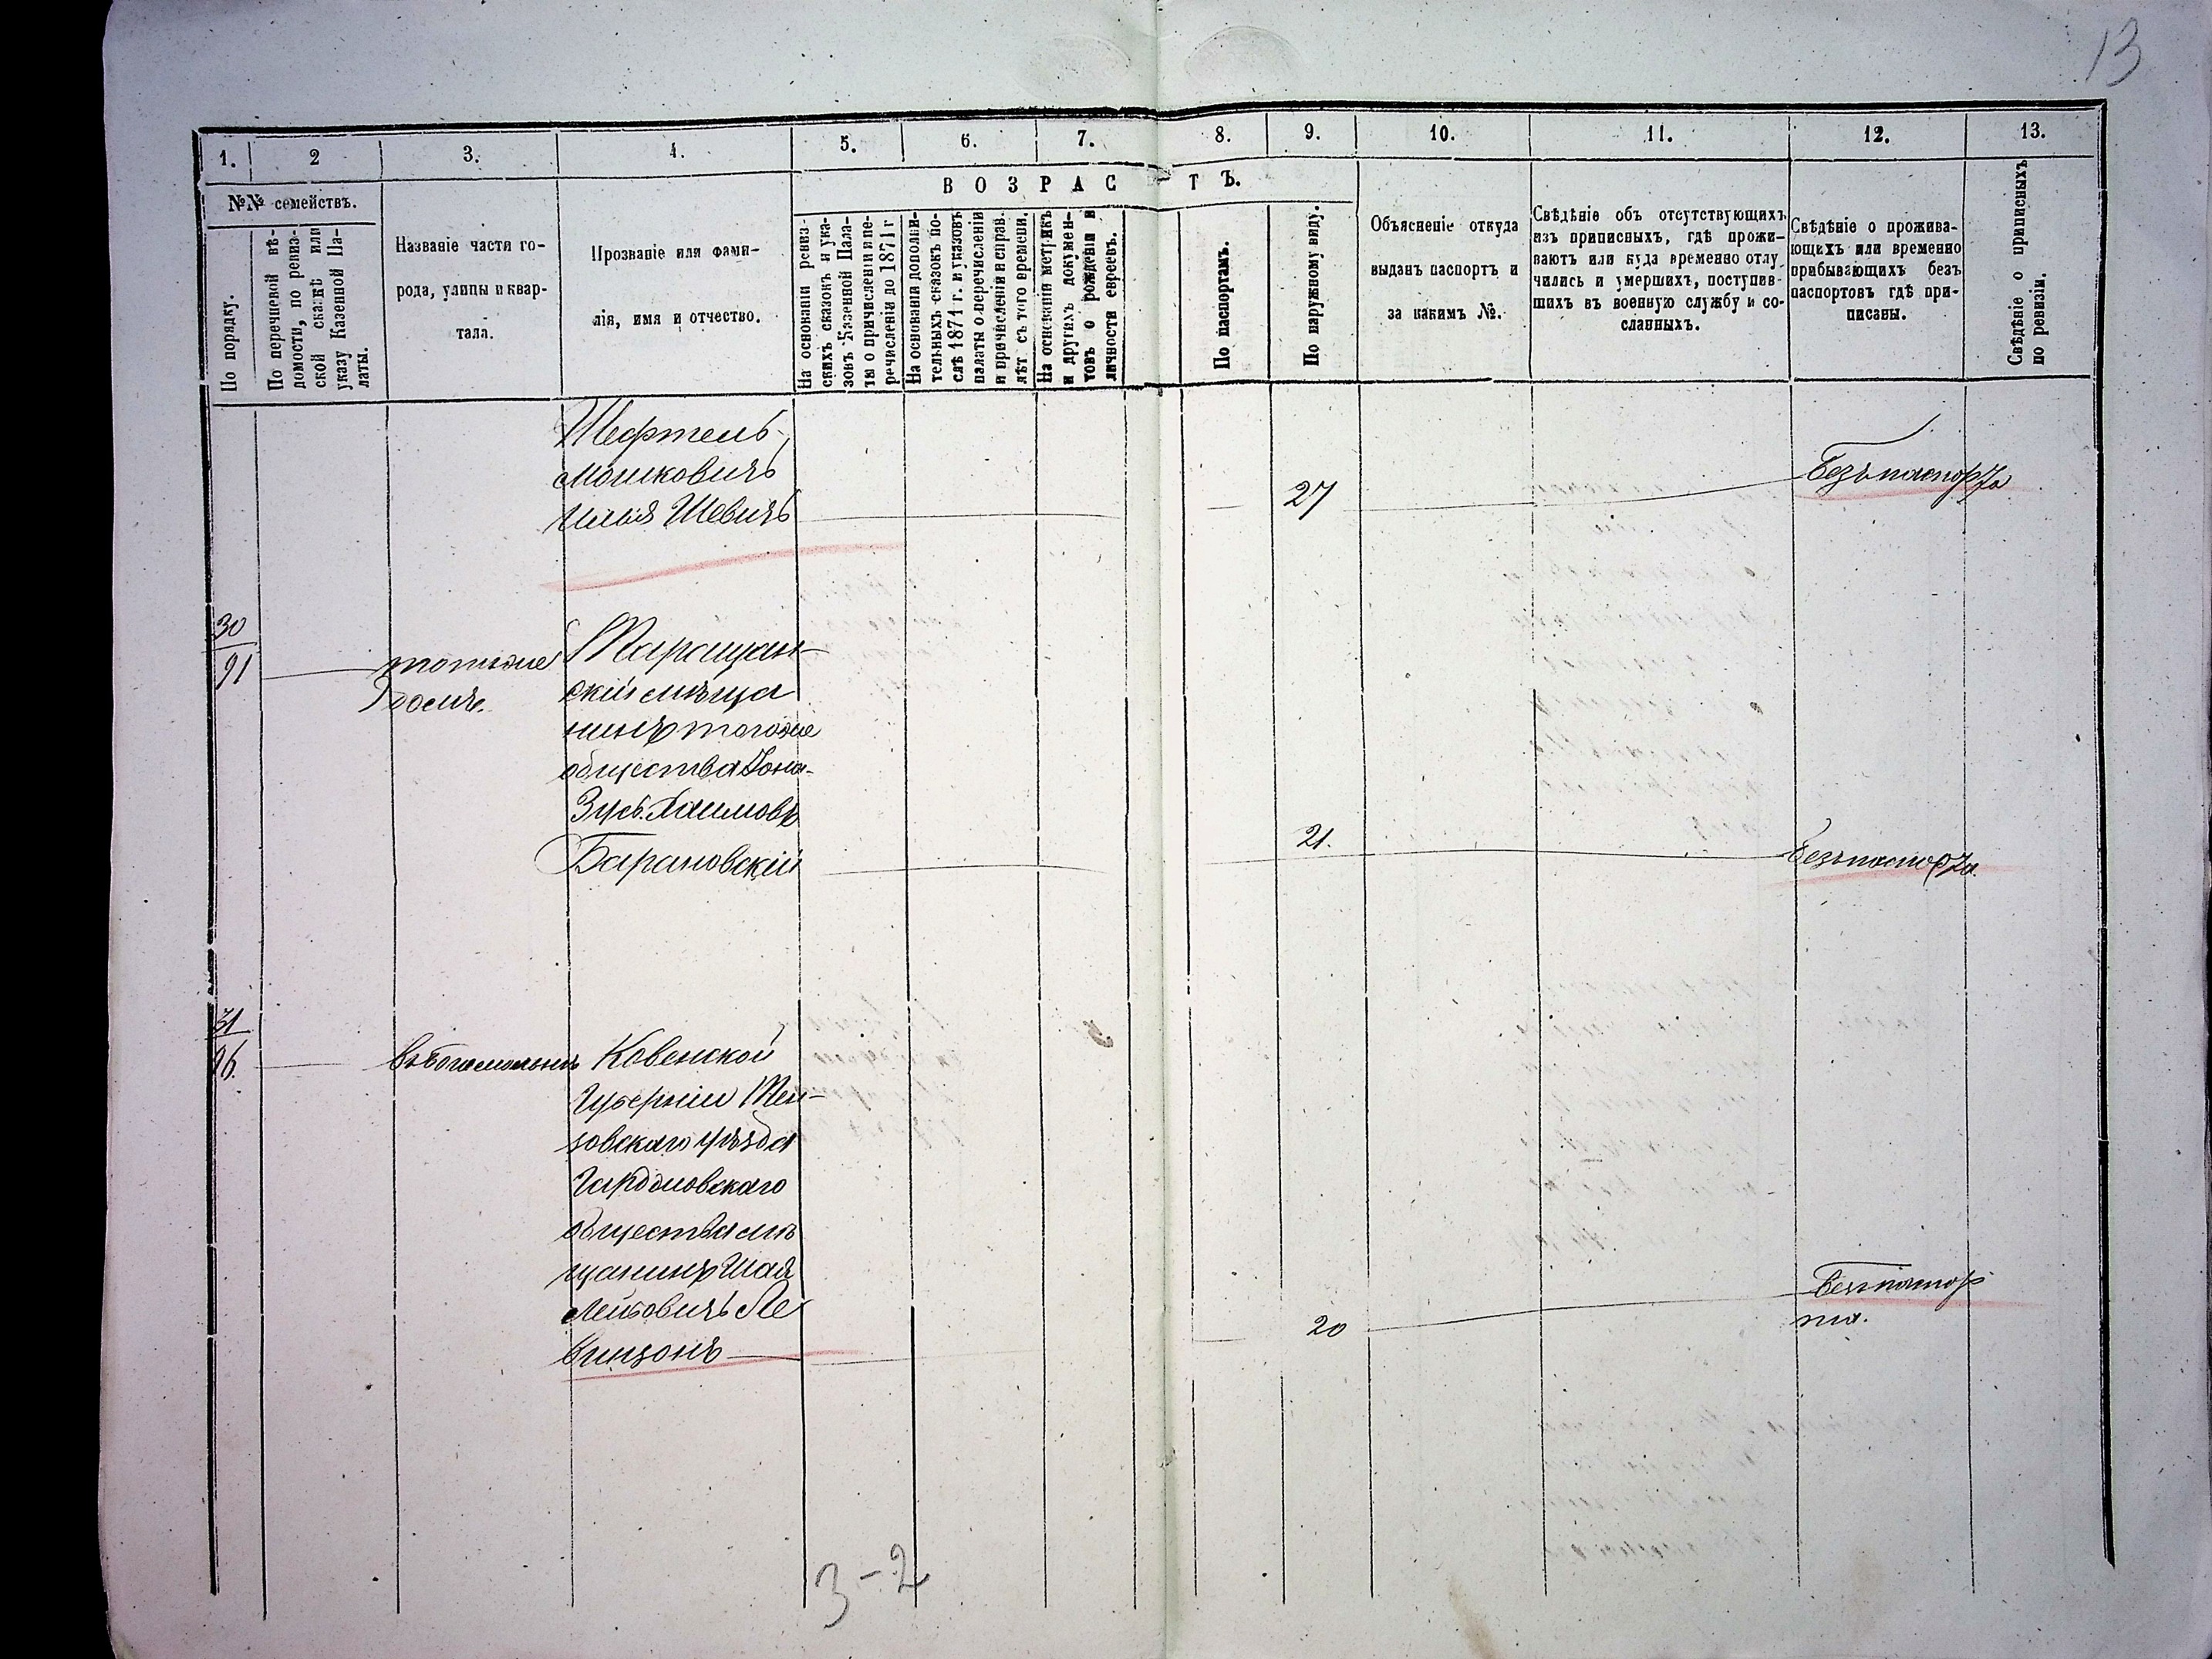 13
1. 2 3. 4. 5. 6. 7. 8. 9. 10. 11. 12. 13.
№№ семействъ.
По порядку.
По перечневой вѣ-
домости, по ревиз-
ской сказкѣ или
указу Казенной Па-
латы.
Названіе части го-
рода, улицы и квар-
тала.
Прозваніе или фами-
лія, имя и отчество.
ВОЗРАСТЪ.
На основаніи ревиз-
скихъ сказокъ и ука-
зовъ Казенной Пала-
ты о причисленіи и пе-
речисленіи до 1871 г
На основаніи дополни-
тельныхъ сказокъ по-
слѣ 1871 г. и указовъ
палаты о перечисленіи
и причисленіи и справ.
лѣт съ того времени.
На основаніи метрикъ
и другихъ докумен-
товъ о рожденіи и
личности евреевъ.
По паспортамъ.
По наружному виду.
Объясненіе откуда
выданъ паспортъ и
за какимъ №.
Свѣдѣніе объ отсутствующихъ
изъ приписныхъ, гдѣ прожи-
ваютъ или куда временно отлу
чились и умершихъ, поступив-
шихъ въ военную службу и со-
сланныхъ.
Свѣдѣніе о прожива-
ющихъ или временно
прибывающихъ безъ
паспортовъ гдѣ при-
писаны.
Свѣдѣніе о приписныхъ
по ревизіи.
Шефтель
Мошковичъ
Шевичъ
27
Безъ паспорта
30
91
томже
домѣ.
Таращан-
скій мѣща
нинъ тогоже
общества
Зусь. Хаимовъ
Барановскій
21.
Безъ паспорта.
31
96.
въ богомольнѣ
Ковенской
Губерніи Тел-
зовскаго уѣзда
Гардомовскаго
общества мѣ
щанинъ Шая
Лейбовичъ Ле
винзонъ
20
Безъ паспор
та.
3-2